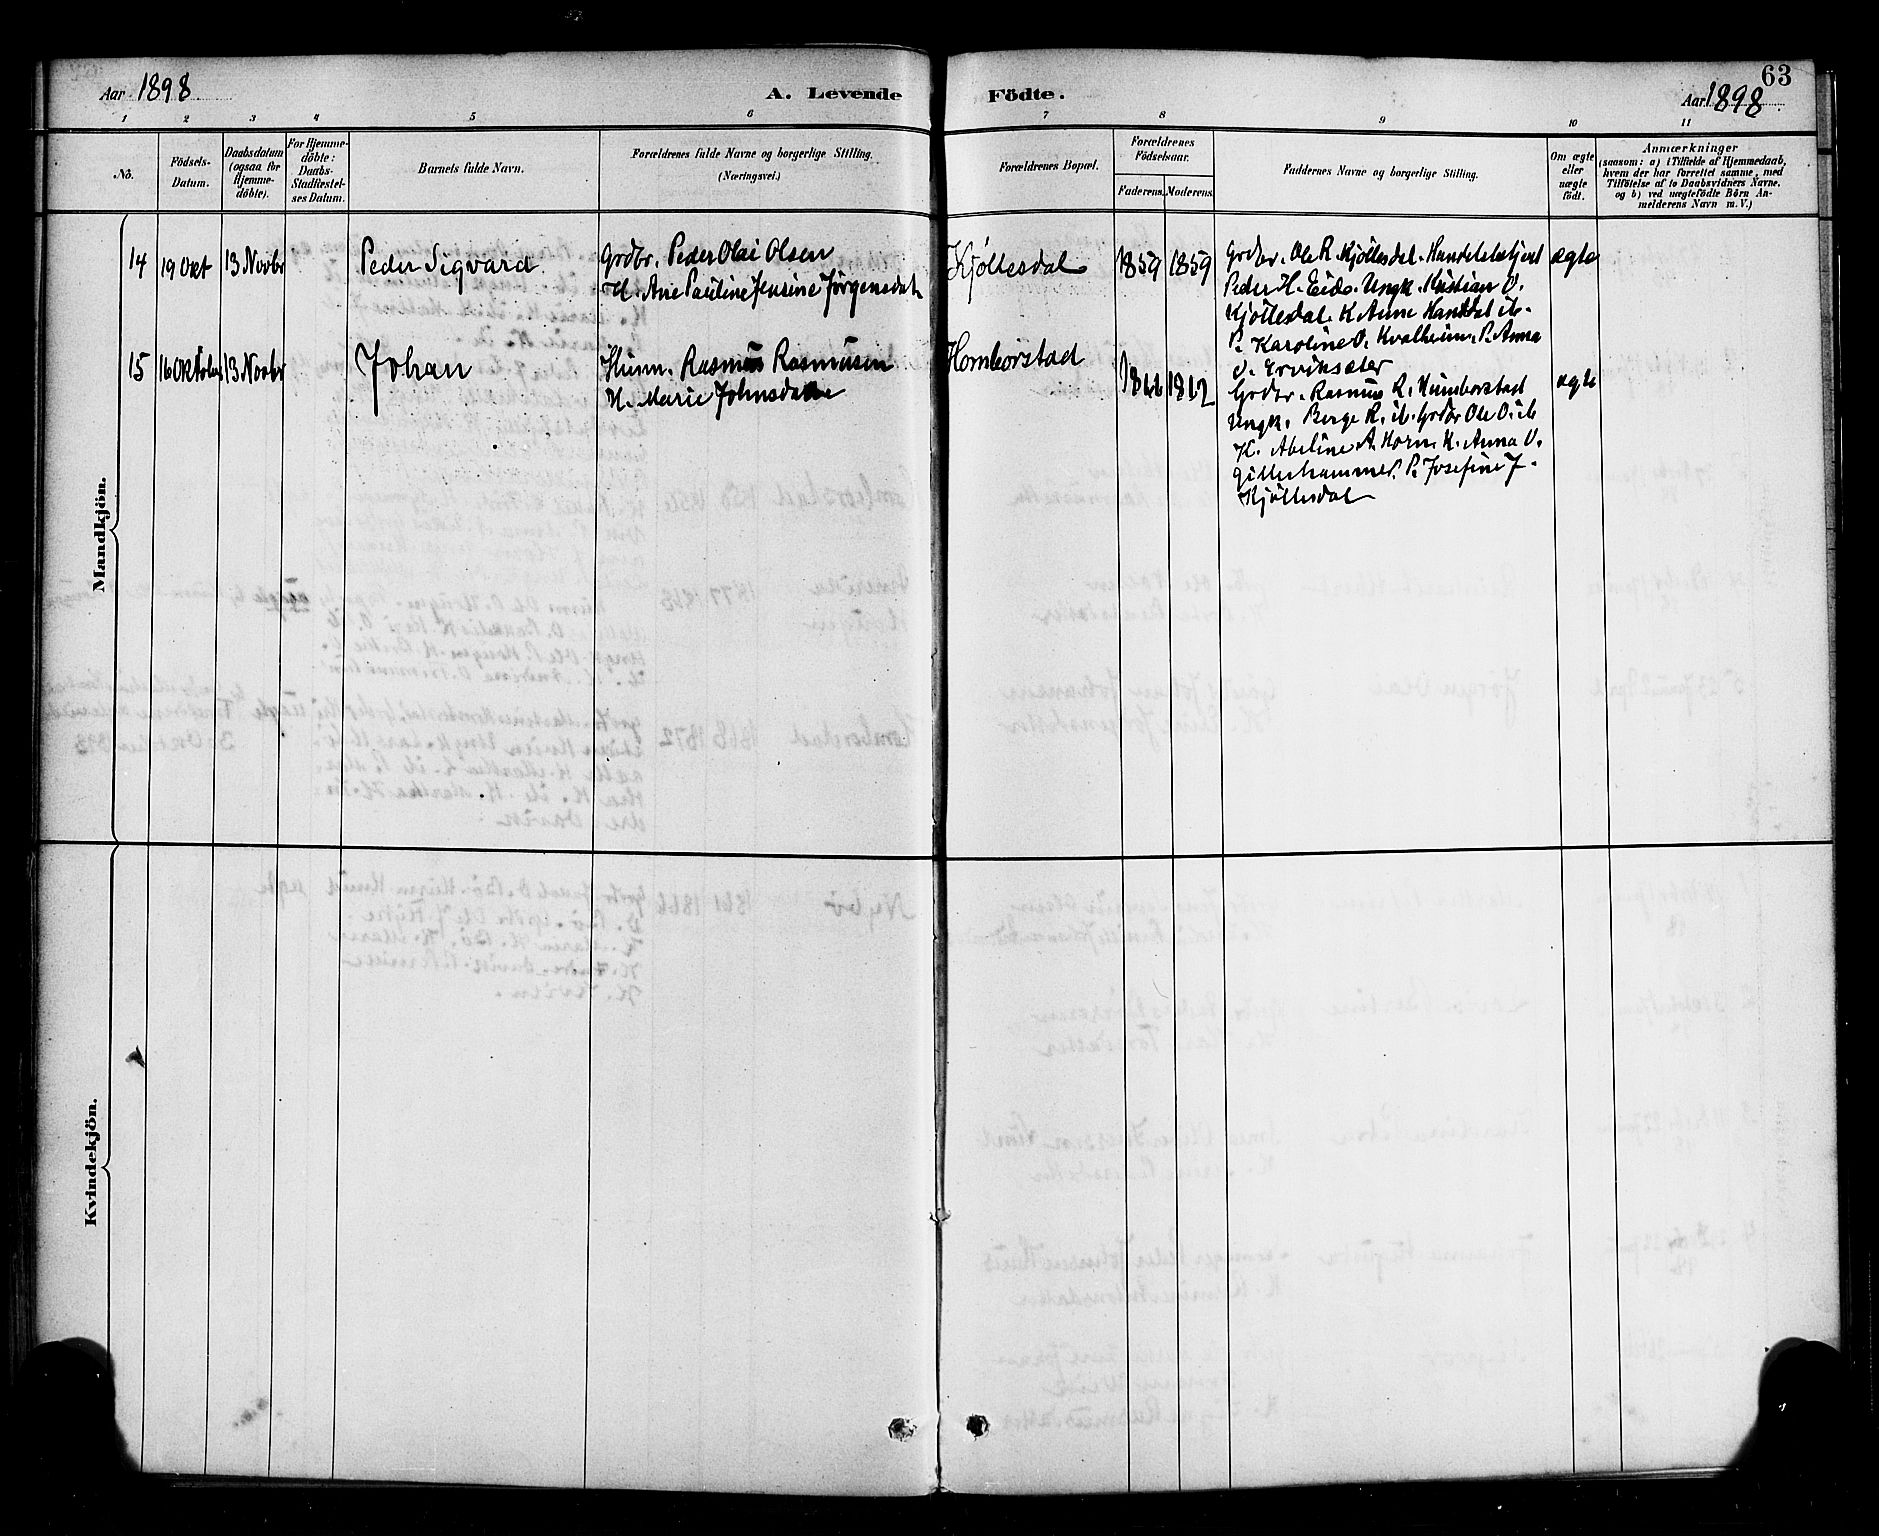 Aar 1898
A. Levende
Födte.
63
Aar 1898
1 2 3 4 5 6 7 8 9 10 11
No.
Födsels-
Datum.
Daabsdatum
(ogsaa for
Hjemme-
döbte).
For Hjemme-
döbte:
Daabs-
Stadfæstel-
ses Datum.
Barnets fulde Navn.
Forældrenes fulde Navne og borgerlige Stilling.
(Næringsvei.)
Forældrenes Bopæl.
Forældrenes
Födselsaar.
Faderens. Moderens.
Faddernes Navne og borgerlige Stilling.
Om ægte
eller
uægte
född.
Anmærkninger
(saasom: a) i Tilfælde af Hjemmedaab,
hvem der har forrettet samme, med
Tilföielse af to Daabsvidners Navne,
og b) ved uægtefödte Börn An-
melderens Navn m. V.)
Mandkjön.
14 19 Okt 13 Novbr Peder Sigvard
Grdbr. Peder Olai Olsen
H. Ane Pauline Jensine Jørgensdat
Kjöllesdal 1859 1859
Grdbr. Ole R. Kjöllesdal. Handelsbetjent
Peder H. Eide. Ungk. Kristian O.
Kjöllesdal. K. Anne Handdal ib.
P. Karoline O. Kvalheim. P. Anna
O. Erviksæter
ægte
15 16 Oktober 13 Novbr Johan
Husm. Rasmus Rasmusen
H. Marie Johnsdatter
Hornborstad 1866 1862
Grdbr. Rasmus R. Humborstad
Ungk. Berge R. ib. Grdbr Ole O. ib
K. Abeline A. Horn. K. Anna O.
Gilleshammer. P. Josefine J.
Kjöllesdal
ægte
Kvindekjön.